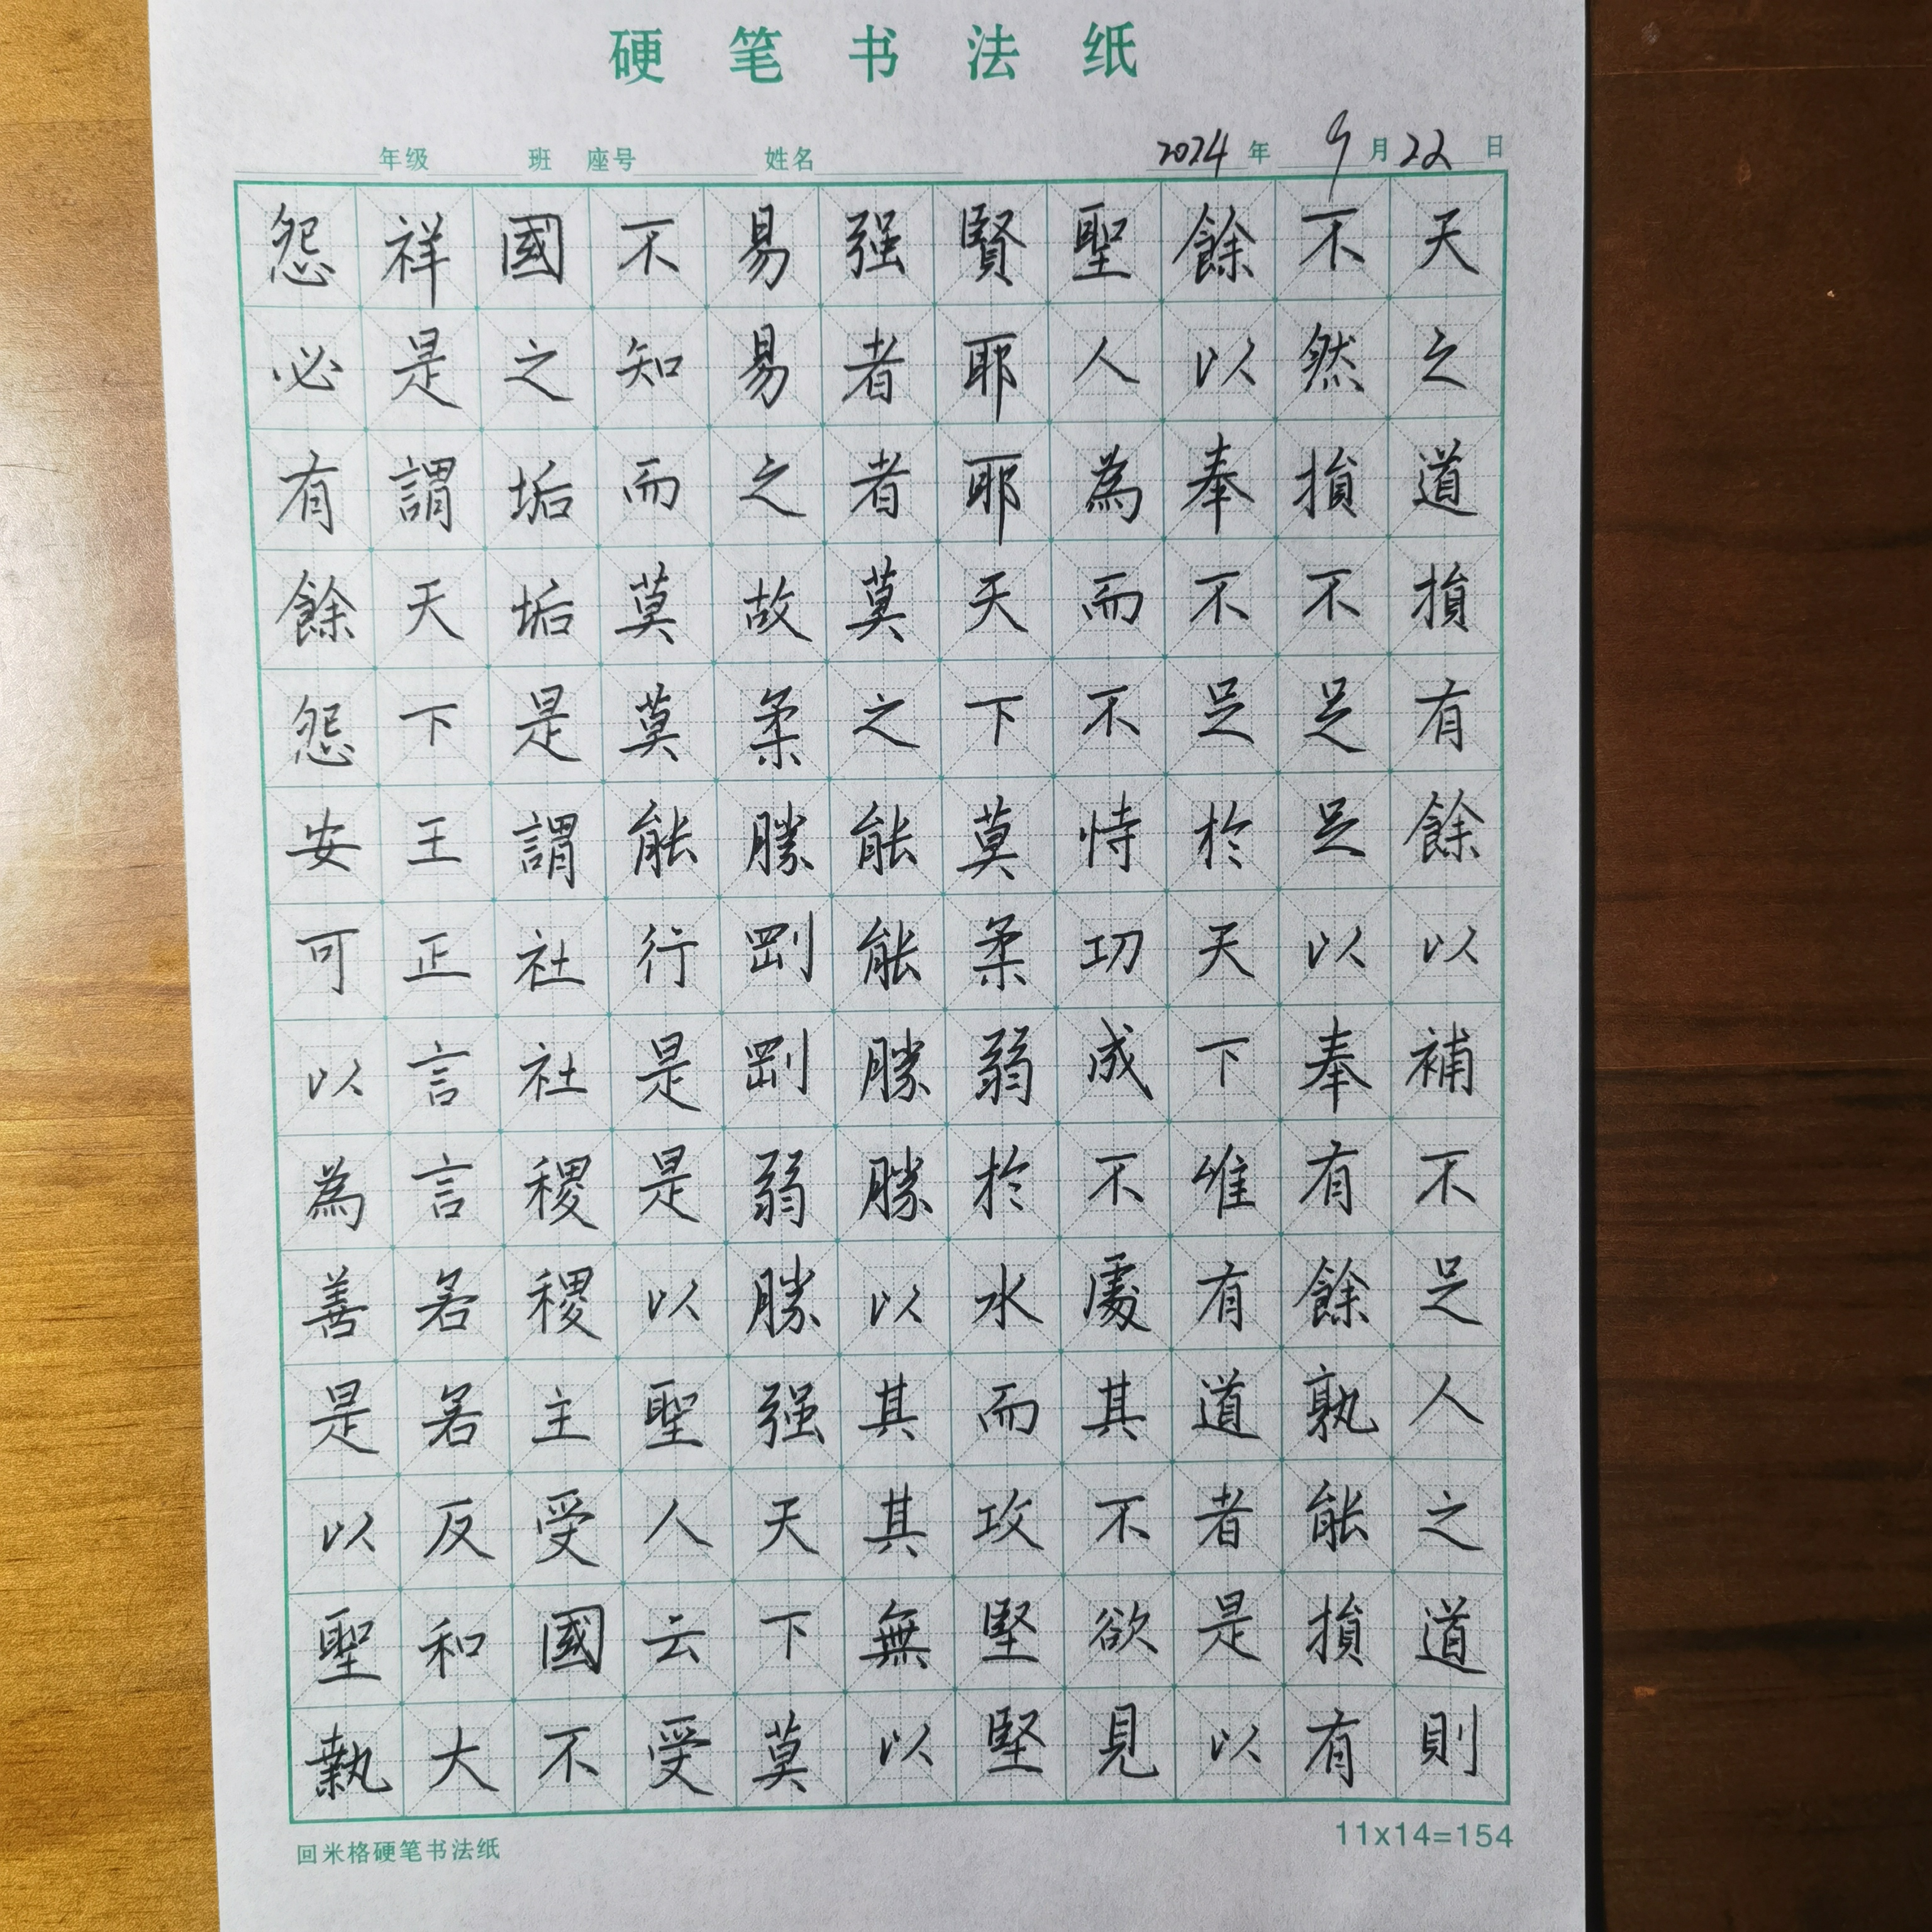 硬笔书法纸
年级 班 座号 姓名 2024年9月22日
天之道損有餘以補不足人之道則
不然損不足足以奉有餘孰能損有
餘以奉不足於天下唯有道者是以
聖人為而不恃功成不處其不欲見
賢耶耶天下莫柔弱於水而攻堅堅
强者者莫之能能勝勝以其其無以
易易之故柔勝剛剛弱勝强天下莫
不知而莫莫能行是是以聖人云受
國之垢垢是謂社社稷稷主受國不
祥是謂天下王正言言若若反和大
怨必有餘怨安可以為善是以聖執
回米格硬笔书法纸
11x14=154